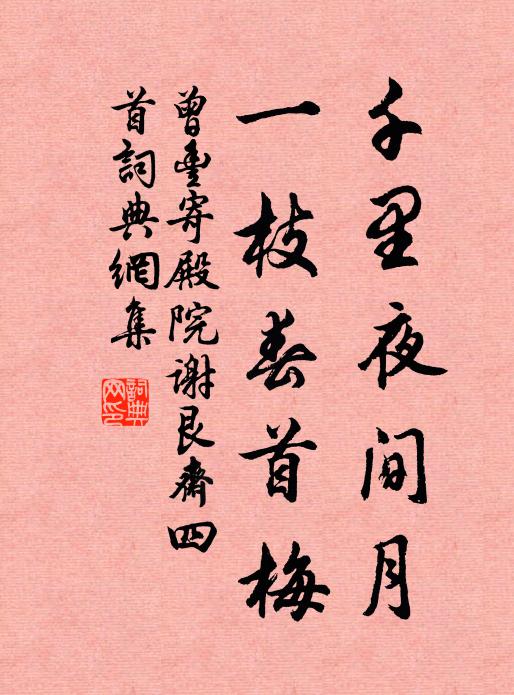 千里夜间月
一枝春首梅
曾豊寄殿院謝艮齋四
首詞典網集
詞典
网印